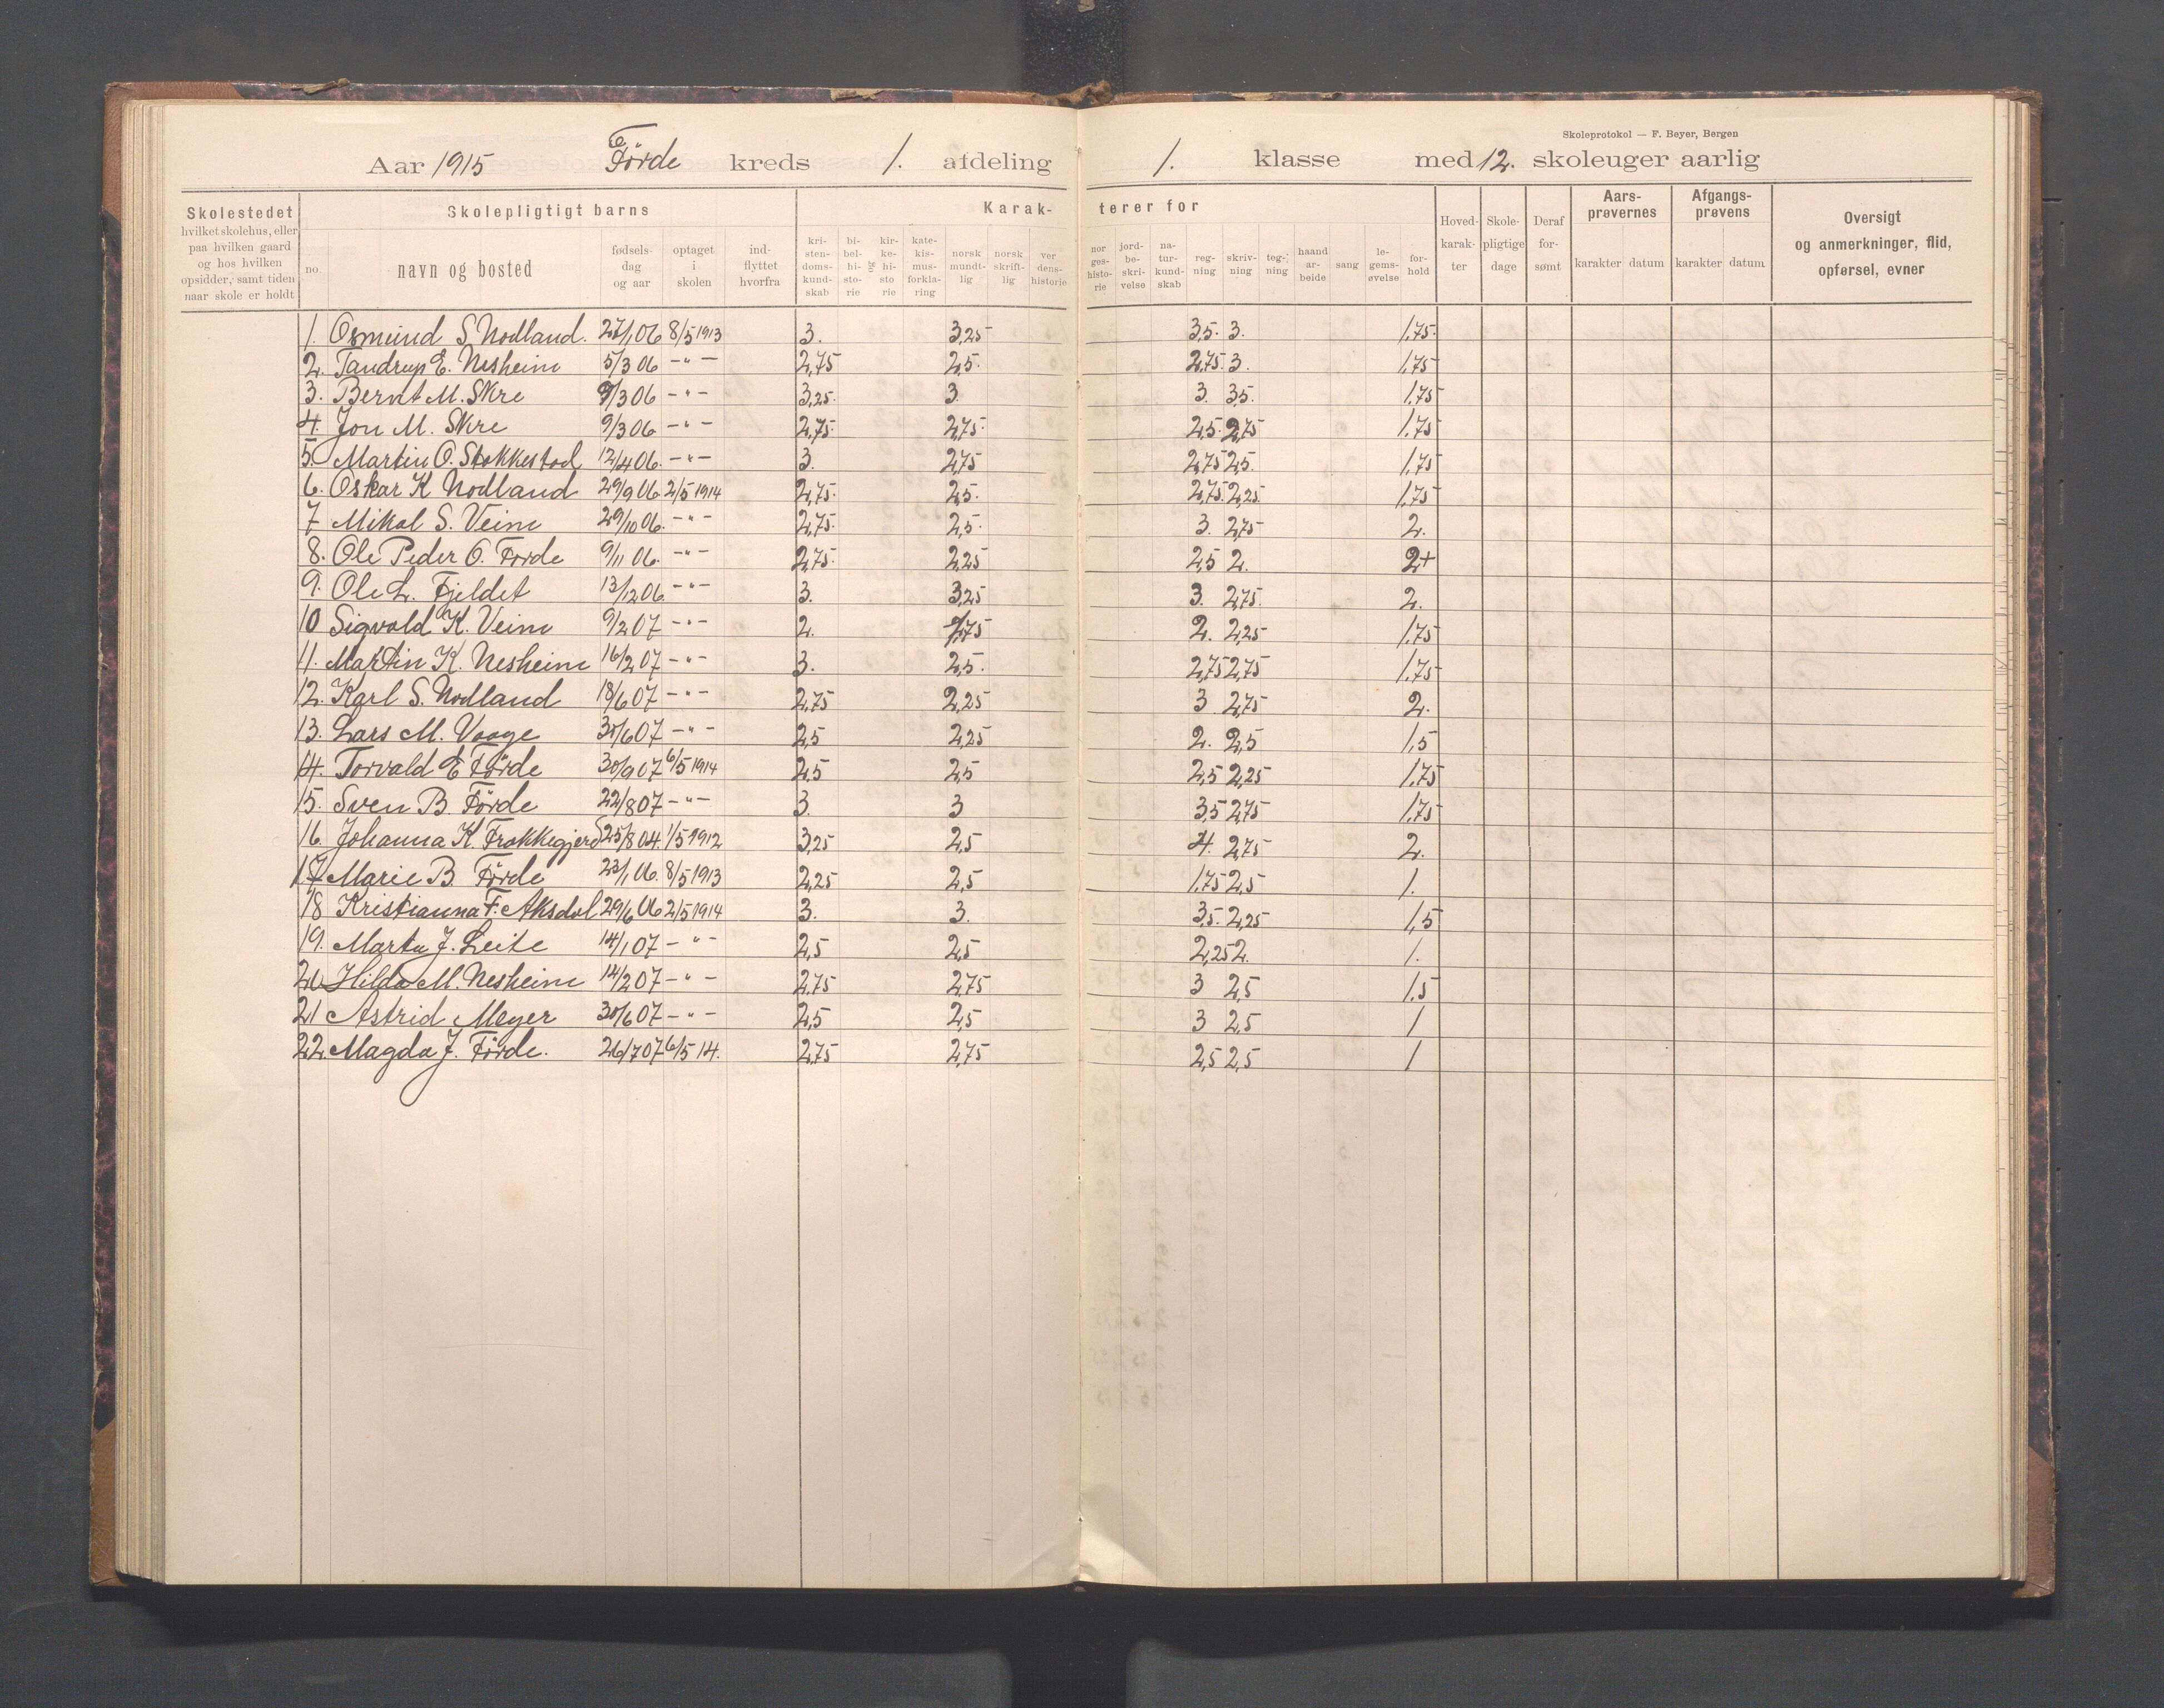 Skoleprotokol — F. Beyer, Bergen
Aar 1915 Förde kreds 1. afdeling 1. klasse med 12. skoleuger aarlig
Skolestedet
hvilket skolehus, eller
paa hvilken gaard
og hos hvilken
opsidder, samt tiden
naar skole er holdt
Skolepligtigt barns
no.
navn og bosted
fødsels-
dag
og aar
optaget
i
skolen
ind-
flyttet
hvorfra
Karak-
terer for
kri-
sten-
doms-
kund-
skab
bi-
bel-
hi-
sto-
rie
og
kir-
ke-
hi-
sto
rie
kate-
kis-
mus-
forkla-
ring
norsk
mundt-
lig
norsk
skrift-
lig
ver
dens-
historie
nor
ges-
histo-
rie
jord-
be-
skri-
velse
na-
tur-
kund-
skab
reg-
ning
skriv-
ning
teg-
ning
haand
ar-
beide
sang
le-
gems-
øvelse
for-
hold
Hoved-
karak-
ter
Skole-
pligtige
dage
Deraf
for-
sømt
Aars-
prøvernes
karakter datum
Afgangs-
prøvens
karakter datum
Oversigt
og anmerkninger, flid,
opførsel, evner
1. Osmund S. Nodland. 27/1 06 8/5 1913 3. 3,25 3,5. 3. 1,75.
2. Tandrup E. Nesheim 5/3 06 -"- 2,75 2,5. 2,75. 3. 1,75
3. Bernt M. Skre 9/3 06 -"- 3,25. 3. 3. 3,5. 1,75
4. Jon M. Skre 9/3 06 -"- 2,75. 2,75. 2,5. 2,75 1,75
5. Martin O. Stokkestad 12/4 06. -"- 3. 2,75 2,75 2,5. 1,75
6. Oskar K Nodland 29/9 06. 2/5 1914 2,75. 2,5. 2,75. 2,25. 1,75
7 Mikal S. Veim 29/10 06. -"- 2,75. 2,5. 3. 2,75 2.
8. Ole Peder O. Förde 9/11 06. -"- 2,75. 2,25 2,5 2. 2+
9. Ole L. Fjeldet 13/12 06. -"- 3. 3,25 3. 2,75. 2.
10 Sigvald K. Veim 9/2 07 -"- 2. 1,75 2. 2,25 1,75
11. Martin K. Nesheim 16/2 07 -"- 3. 2,5. 2,75 2,75 1,75
12. Karl S. Nodland 18/6 07 -"- 2,75 2,25 3 2,75 2.
13. Lars M. Vaage 30/6 07 -"- 2,5 2,25 2. 2,5 1,5
14. Torvald E Förde 30/9 07 6/5 1914 2,5 2,5 2,5 2,25 1,75
15. Sven B. Förde 22/8 07 -"- 3. 3 3,5 2,75 1,75
16. Johanna K. Frakkegjerd 25/8 04. 1/5 1912 3,25 2,5 4. 2,75 2.
17 Marie B. Förde 23/1 06. 8/5 1913 2,25 2,5 1,75 2,5 1.
18 Kristianna F. Aksdal 29/6 06 2/5 1914 3. 3. 3,5. 2,25 1,5
19. Marta J. Leite 14/1 07 -"- 2,5 2,5 2,25 2. 1.
20 Hilda M. Nesheim 14/2 07 -"- 2,75 2,75 3 2,5 1,5
21 Astrid Meyer 30/6 07 -"- 2,5 2,5 3 2,5 1
22. Magda J. Förde. 26/7 07 6/5 14. 2,75 2,75 2,5 2,5 1